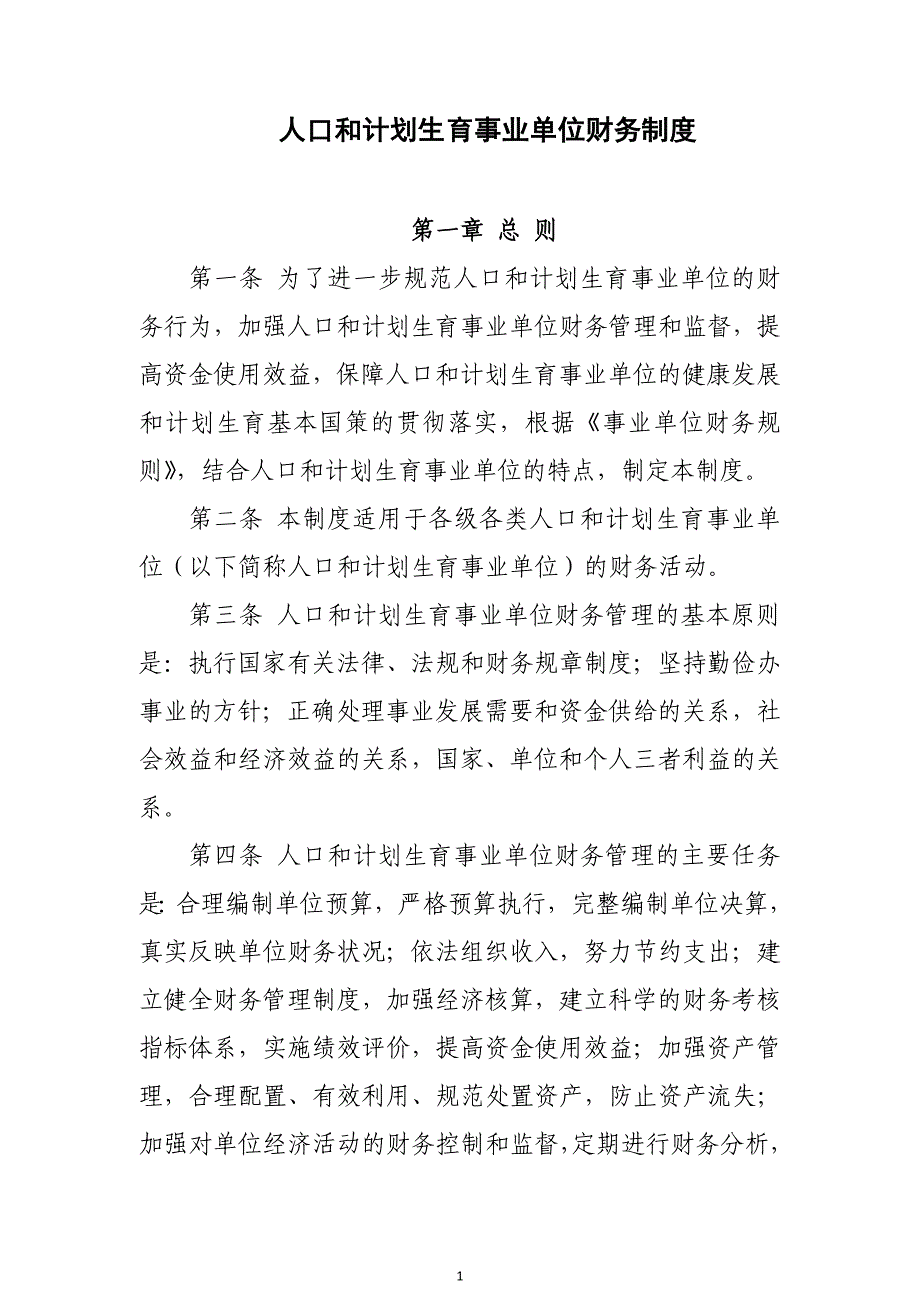 人口和计划生育事业单位财务制度
第一章 总 则
第一条 为了进一步规范人口和计划生育事业单位的财
务行为，加强人口和计划生育事业单位财务管理和监督，提
高资金使用效益，保障人口和计划生育事业单位的健康发展
和计划生育基本国策的贯彻落实，根据《事业单位财务规
则》，结合人口和计划生育事业单位的特点，制定本制度。
第二条 本制度适用于各级各类人口和计划生育事业单
位（以下简称人口和计划生育事业单位）的财务活动。
第三条 人口和计划生育事业单位财务管理的基本原则
是：执行国家有关法律、法规和财务规章制度；坚持勤俭办
事业的方针；正确处理事业发展需要和资金供给的关系，社
会效益和经济效益的关系，国家、单位和个人三者利益的关
系。
第四条 人口和计划生育事业单位财务管理的主要任务
是：合理编制单位预算，严格预算执行，完整编制单位决算，
真实反映单位财务状况；依法组织收入，努力节约支出；建
立健全财务管理制度，加强经济核算，建立科学的财务考核
指标体系，实施绩效评价，提高资金使用效益；加强资产管
理，合理配置、有效利用、规范处置资产，防止资产流失；
加强对单位经济活动的财务控制和监督，定期进行财务分析，
1